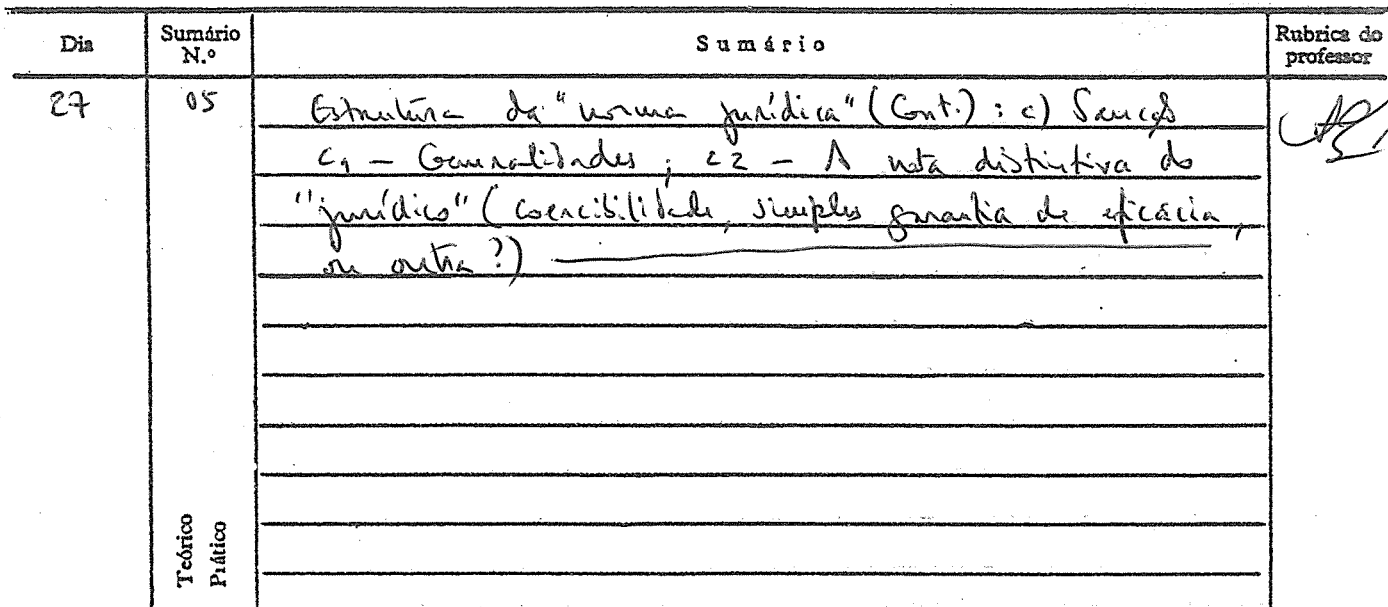 Dia
Sumário
N.º
Sumário
Rubrica do
professor
27
05
Estrutura da "norma jurídica" (Cont.): c) Sanção
c1 - Generalidades; c2 - A nota distintiva do
"jurídico" (coercibilidade, simples garantia de eficácia,
ou outra?)
Teórico
Prático